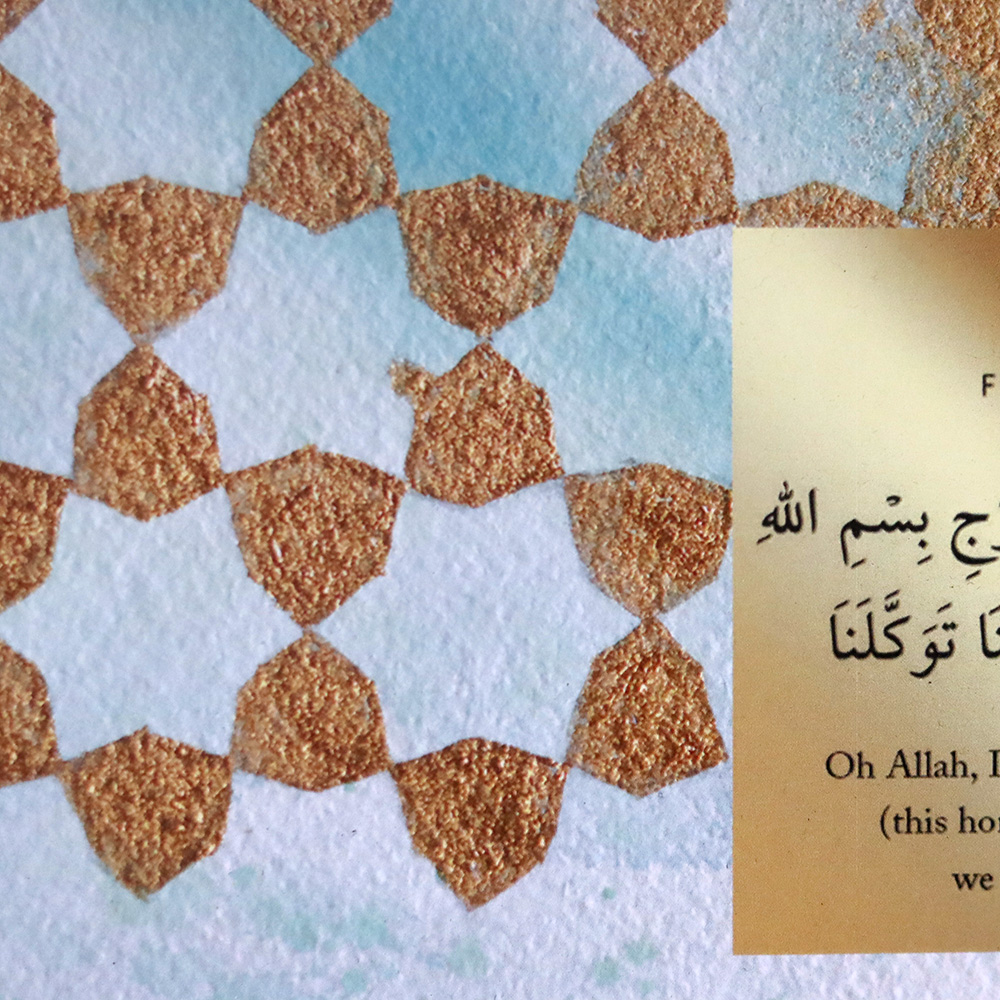 F
ـرَجِ بِسْمِ اللهِ
نَا تَوَكَّلَنَا
Oh Allah, I
(this hor
we